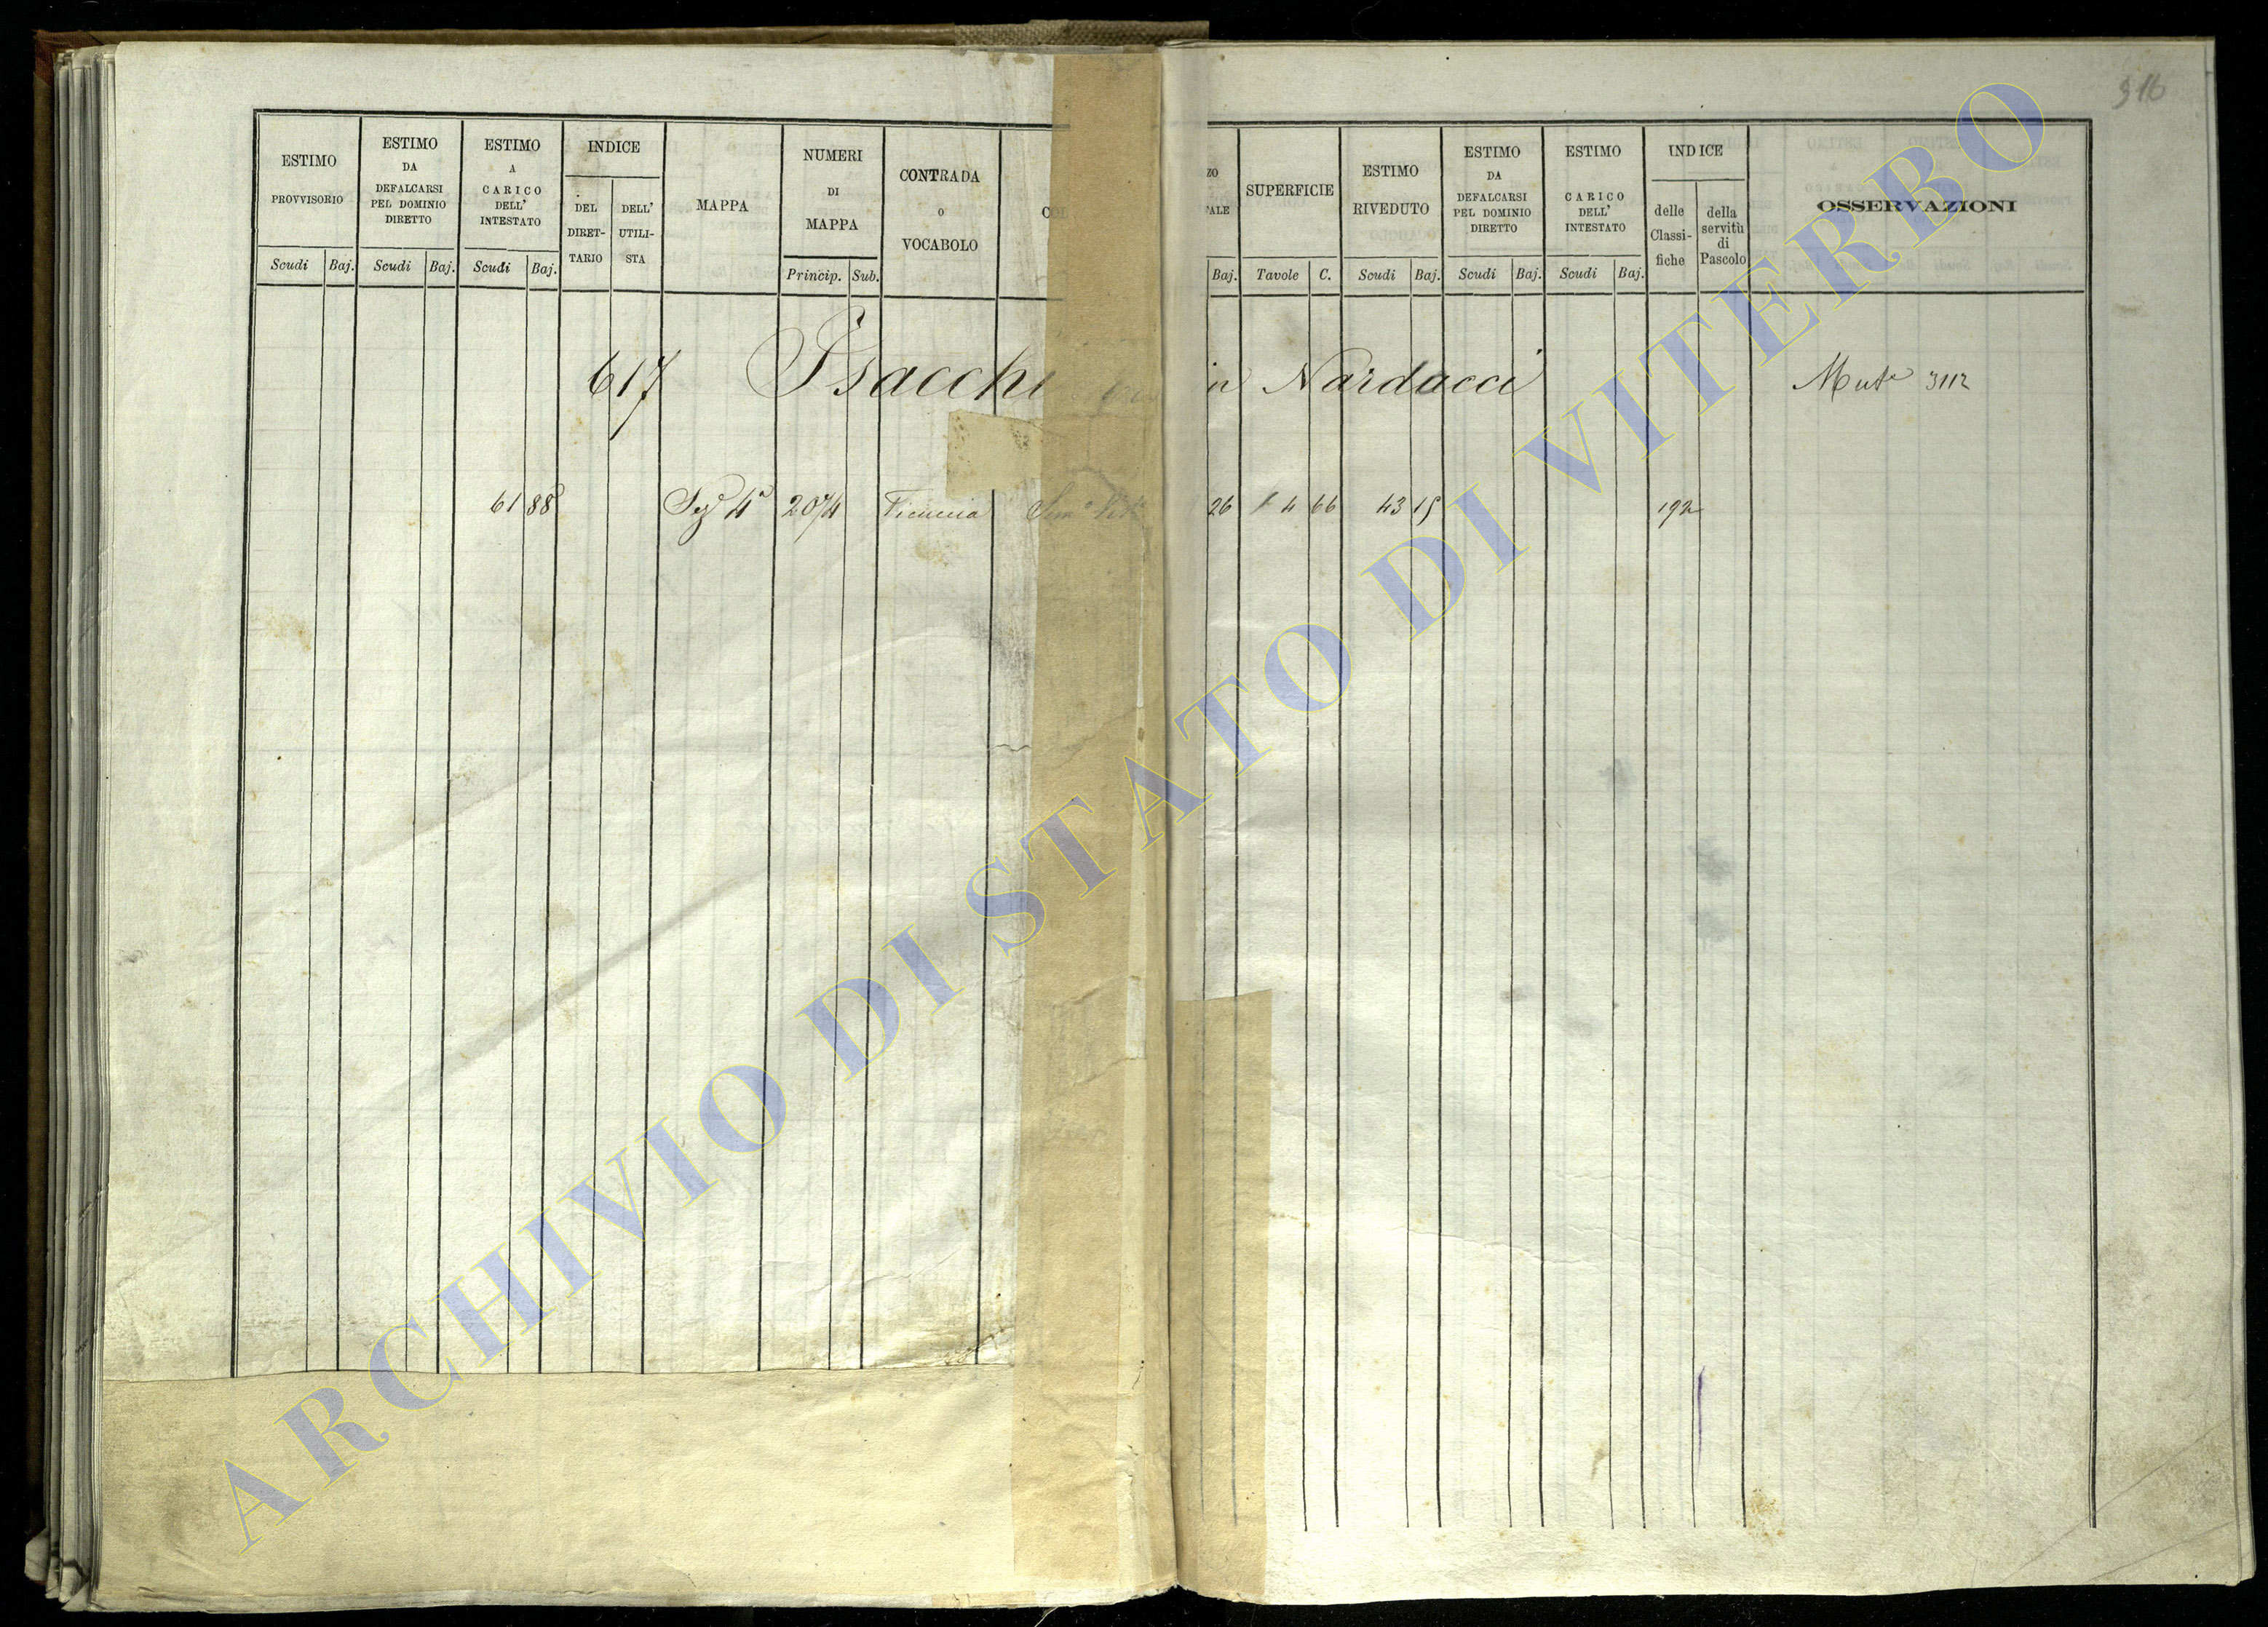 316
ESTIMO PROVVISORIO
ESTIMO DA DEFALCARSI PEL DOMINIO DIRETTO
ESTIMO A CARICO DELL' INTESTATO
INDICE
DEL DIRET-TARIO
DELL' UTILI-STA
MAPPA
NUMERI DI MAPPA
CONTRADA o VOCABOLO
Scudi Baj. Scudi Baj. Scudi Baj. Princip. Sub.
SUPERFICIE
ESTIMO RIVEDUTO
ESTIMO DA DEFALCARSI PEL DOMINIO DIRETTO
ESTIMO CARICO DELL' INTESTATO
INDICE
delle Classi-fiche
della servitù di Pascolo
OSSERVAZIONI
Baj. Tavole C. Scudi Baj. Scudi Baj. Scudi Baj.
617 Isacchi in Nardacci Mut 3112
61 88 Sez 4ª 2074 26 4 66 43 15 192
ARCHIVIO DI STATO DI VITERBO